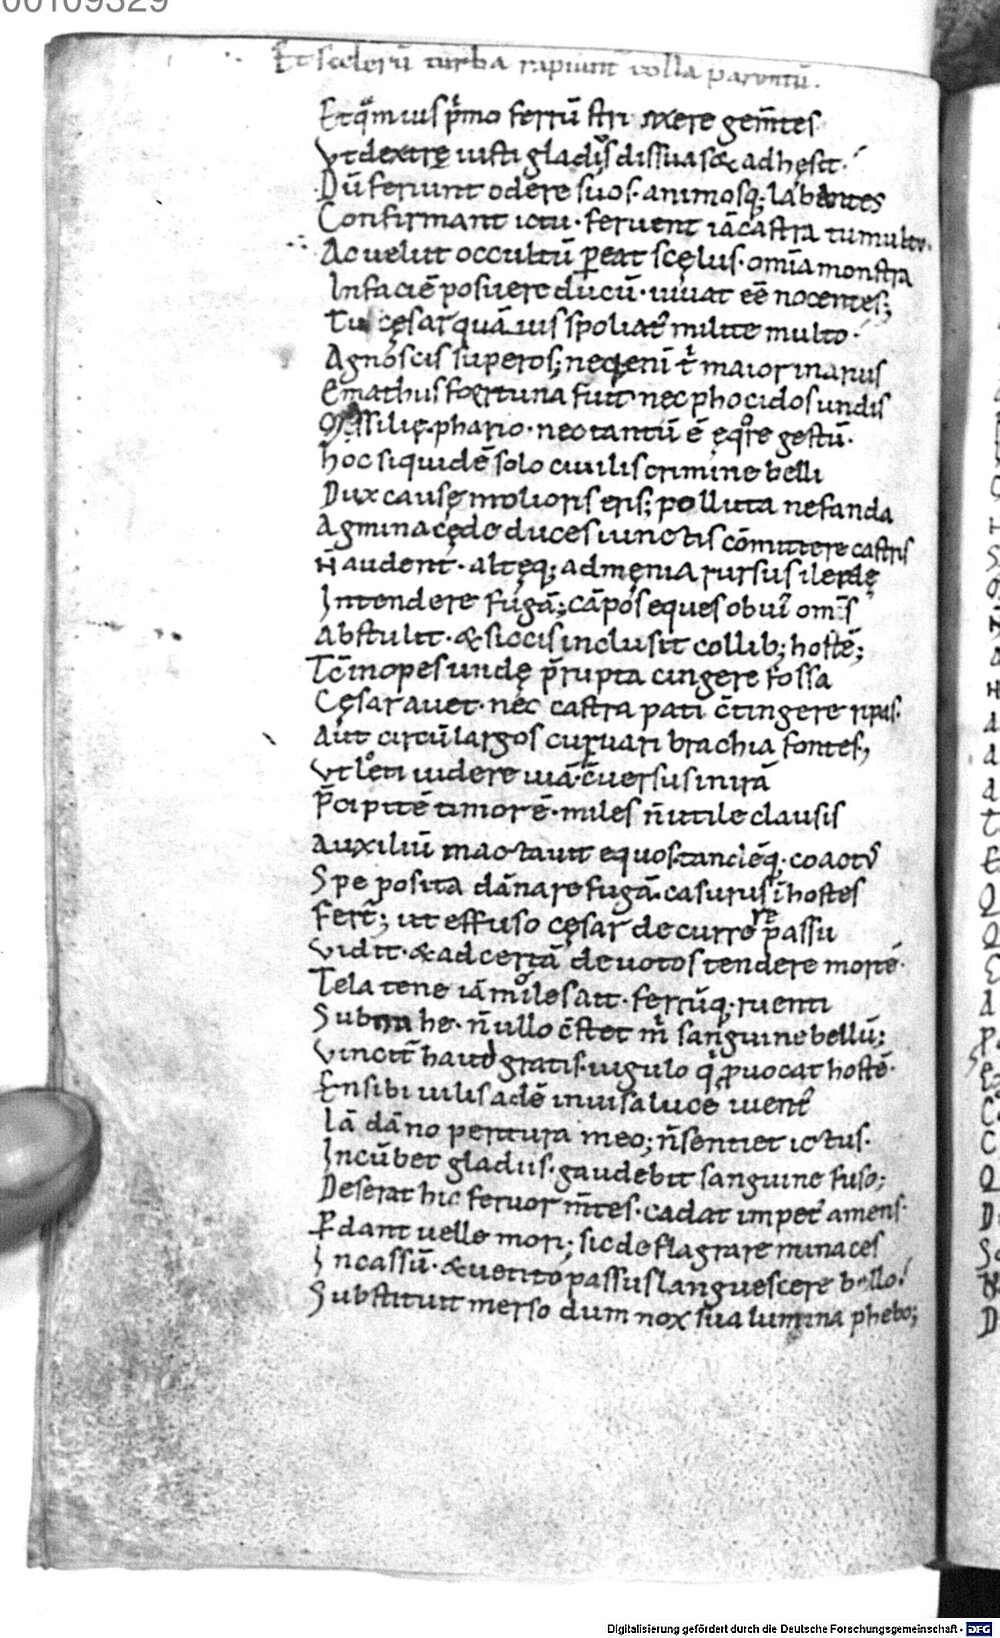 00109329
Et scelerū turba rapiunt colla parentū.
Etq̄m ius p̄mo ferrū stri nxere gem̄tes
Vt dextrę iusti gladiꝰ dissuasæ adhęsit.
Dū feriunt odere suos. animosq; labentes
Confirmant ictu. feruent iā castra tumultu.
Ac uelut occultū ꝑeat scęlus. omīa monstra
In faciē posuere ducū. iuuat eē nocentes;
Tu cęsar quāuis spoliatꝰ milite multo.
Agnoscis superos; neq; enī t maior in aruis
Emathiis fortuna fuit nec phocidos undis
Massilię. phario. nec tantū ē ęqͦre gestū.
Hoc siquidē solo ciuilis crimine belli
Dux causę melioris eris; polluta nefanda
Agmina cęde duces iunctis cōmittere castris
N̄ audent. altęq; ad męnia rursus ilerdę
Intendere fugā; cāpos eques obuiꝰ om̄s
Abstulit. & siccis inclusit collib; hostē;
Tc̄ inopes undę p̄rupta cingere fossa
Cęsar auet. nec castra pati c̄tingere ripas.
Aut circū largos curuari brachia fontes,
Vt leti uidere uiā. c̄uersus in irā
P̄cipitē timorē. miles n̄ utile clausis
Auxiliū mactauit equos. tandēq; coactꝰ
Spe posita dānare fugā. casurus ī hostes
Fert̄; ut effuso cęsar decurrere passu
Vidit. & ad certā deuotos tendere mortē.
Tela tene iā miles ait. ferrūq; ruenti
Subtrahe. n̄ ullo c̄stet m̄ sanguine bellū;
Vincit̄ haud gratis. iugulo q̄ ꝓuocat hostē.
En sibi uilis adē inuisa luce iuentꝰ
Iā dāno peritura meo; n̄ sentiet ictus.
Incūbet gladiis. gaudebit sanguine fuso;
Deserat hic feruor m̄tes. cadat impetꝰ amens.
Ꝑdant uelle mori; sic deflagrare minaces
Incassū. & uetito passus languescere bello.
Substituit merso dum nox sua lumina phebo;
Digitalisierung gefördert durch die Deutsche Forschungsgemeinschaft - DFG